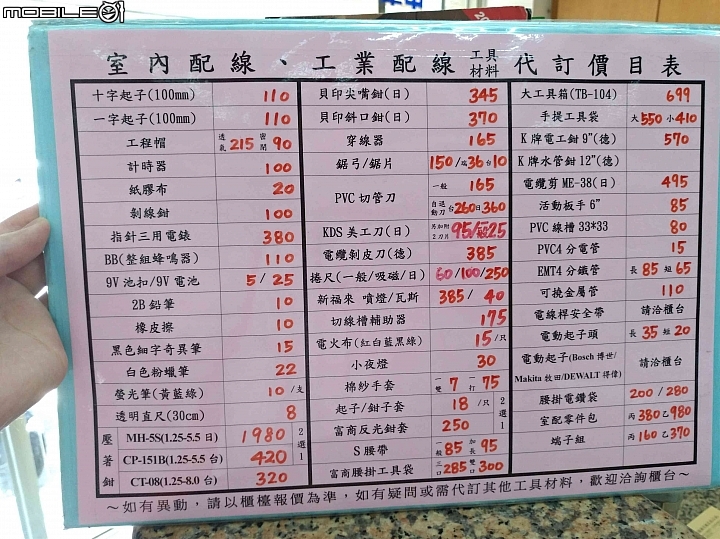 MOBILE01
室內配線、工業配線 工具材料 代訂價目表
十字起子(100mm) 110
一字起子(100mm) 110
工程帽 透氣 215 密閉 90
計時器 100
紙膠布 20
剝線鉗 100
指針三用電錶 380
BB(整組蜂鳴器) 110
9V 池扣/9V 電池 5 / 25
2B 鉛筆 10
橡皮擦 10
黑色細字奇異筆 15
白色粉蠟筆 22
螢光筆(黃藍綠) 10 /支
透明直尺(30cm) 8
壓著鉗 2選1
MH-5S(1.25-5.5 日) 1980
CP-151B(1.25-5.5 台) 420
CT-08(1.25-8.0 台) 320
貝印尖嘴鉗(日) 345
貝印斜口鉗(日) 370
穿線器 165
鋸弓/鋸片 150/ 36 台10
PVC 切管刀 一般 165
自退動刀 台260 日360
KDS 美工刀(日) 另加附2刀片 95/ 25
電纜剝皮刀(德) 385
捲尺(一般/吸磁/日) 60/100/250
新福來 噴燈/瓦斯 385/ 40
切線槽輔助器 175
電火布(紅白藍黑綠) 15 /只
小夜燈 30
棉紗手套 一雙 7 一打 75
起子/鉗子套 18 /只 2選1
富商反光鉗套 250
S 腰帶 一般 85 加長 95
富商腰掛工具袋 三口 285 雙口 300
大工具箱(TB-104) 699
手提工具袋 大550 小410
K 牌電工鉗 9"(德) 570
K 牌水管鉗 12"(德)
電纜剪 ME-38(日) 495
活動板手 6" 85
PVC 線槽 33*33 80
PVC4 分電管 15
EMT4 分鐵管 長 85 短 65
可撓金屬管 110
電線桿安全帶 請洽櫃台
電動起子頭 長 35 短 20
電動起子(Bosch 博世/
Makita 牧田/DEWALT 得偉) 請洽櫃台
腰掛電鑽袋 200 / 280
室配零件包 丙 380 乙980
端子組 丙 160 乙370
～如有異動，請以櫃檯報價為準，如有疑問或需代訂其他工具材料，歡迎洽詢櫃台～